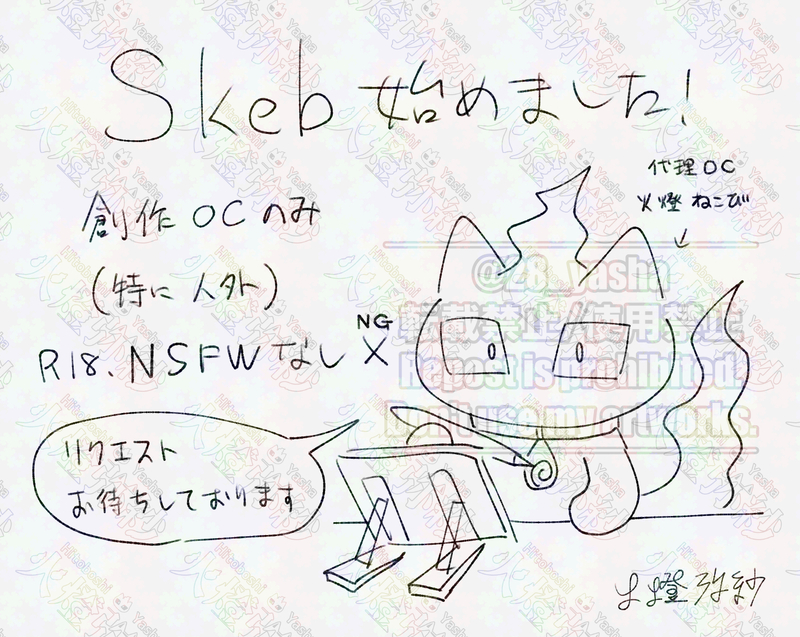 Skeb 始めました!
創作 OC のみ
(特に 人外)
R18. NSFW なし
NG
X
代理 OC
火燈 ねこび
リクエスト
お待ちしております
@28_yasha
転載禁止/使用禁止
Repost is prohibited.
Don't use my artworks.
火燈弥紗